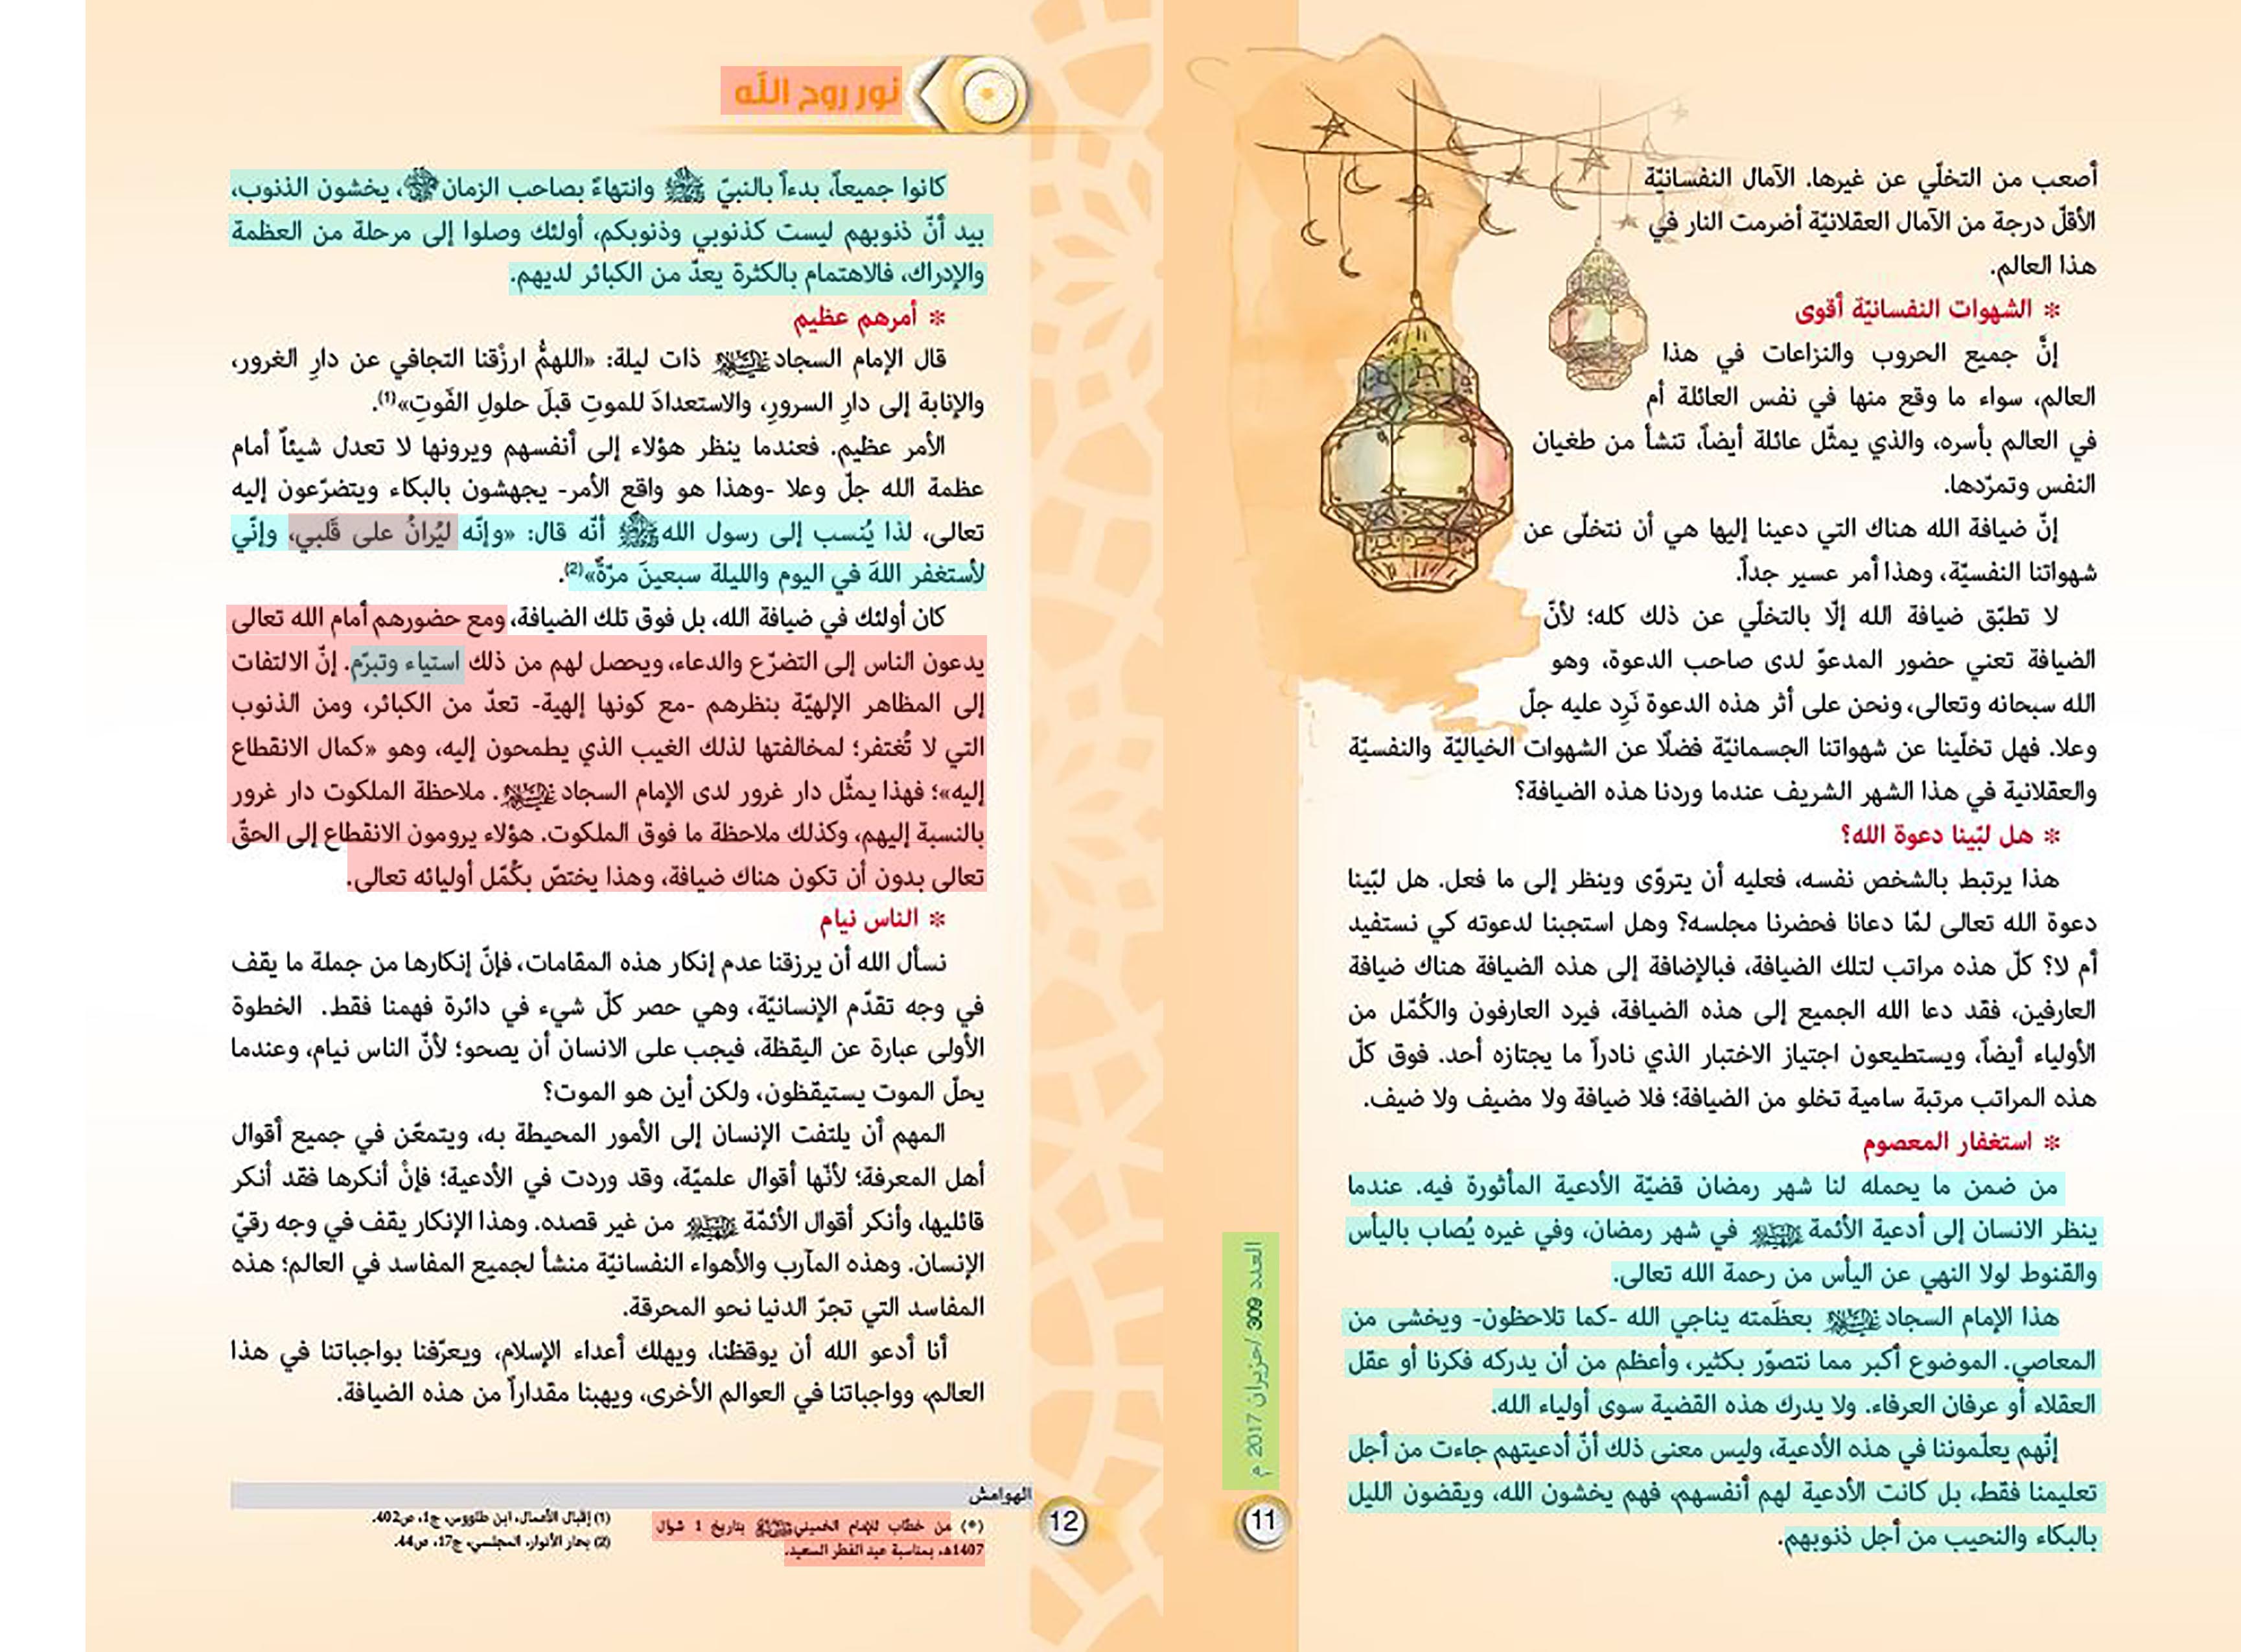 أصعب من التخلّي عن غيرها. الآمال النفسانيّة
الأقلّ درجة من الآمال العقلانيّة أضرمت النار في
هذا العالم.
* الشهوات النفسانيّة أقوى
إنَّ جميع الحروب والنزاعات في هذا
العالم، سواء ما وقع منها في نفس العائلة أم
في العالم بأسره، والذي يمثّل عائلة أيضاً، تنشأ من طغيان
النفس وتمرّدها.
إنّ ضيافة الله هناك التي دعينا إليها هي أن نتخلّى عن
شهواتنا النفسيّة، وهذا أمر عسير جداً.
لا تطبّق ضيافة الله إلّا بالتخلّي عن ذلك كله؛ لأنّ
الضيافة تعني حضور المدعوّ لدى صاحب الدعوة، وهو
الله سبحانه وتعالى، ونحن على أثر هذه الدعوة نَرِد عليه جلّ
وعلا. فهل تخلّينا عن شهواتنا الجسمانيّة فضلًا عن الشهوات الخياليّة والنفسيّة
والعقلانية في هذا الشهر الشريف عندما وردنا هذه الضيافة؟
* هل لبّينا دعوة الله؟
هذا يرتبط بالشخص نفسه، فعليه أن يتروّى وينظر إلى ما فعل. هل لبّينا
دعوة الله تعالى لمّا دعانا فحضرنا مجلسه؟ وهل استجبنا لدعوته كي نستفيد
أم لا؟ كلّ هذه مراتب لتلك الضيافة، فبالإضافة إلى هذه الضيافة هناك ضيافة
العارفين، فقد دعا الله الجميع إلى هذه الضيافة، فيرد العارفون والكُمّل من
الأولياء أيضاً، ويستطيعون اجتياز الاختبار الذي نادراً ما يجتازه أحد. فوق كلّ
هذه المراتب مرتبة سامية تخلو من الضيافة؛ فلا ضيافة ولا مضيف ولا ضيف.
* استغفار المعصوم
من ضمن ما يحمله لنا شهر رمضان قضيّة الأدعية المأثورة فيه. عندما
ينظر الانسان إلى أدعية الأئمة في شهر رمضان، وفي غيره يُصاب باليأس
والقنوط لولا النهي عن اليأس من رحمة الله تعالى.
هذا الإمام السجاد بعظَمته يناجي الله -كما تلاحظون- ويخشى من
المعاصي. الموضوع أكبر مما نتصوّر بكثير، وأعظم من أن يدركه فكرنا أو عقل
العقلاء أو عرفان العرفاء. ولا يدرك هذه القضية سوى أولياء الله.
إنّهم يعلّموننا في هذه الأدعية، وليس معنى ذلك أنّ أدعيتهم جاءت من أجل
تعليمنا فقط، بل كانت الأدعية لهم أنفسهم، فهم يخشون الله، ويقضون الليل
بالبكاء والنحيب من أجل ذنوبهم.
العدد 309 /حزيران 2017 م
11
نور روح الله
كانوا جميعاً، بدءاً بالنبيّ ﷺ وانتهاءً بصاحب الزمان، يخشون الذنوب،
بيد أنّ ذنوبهم ليست كذنوبي وذنوبكم، أولئك وصلوا إلى مرحلة من العظمة
والإدراك، فالاهتمام بالكثرة يعدّ من الكبائر لديهم.
* أمرهم عظيم
قال الإمام السجاد ذات ليلة: «اللهمُّ ارزُقنا التجافي عن دارِ الغرور،
والإنابة إلى دارِ السرورِ، والاستعدادَ للموتِ قبلَ حلولِ الفَوتِ»(1).
الأمر عظيم. فعندما ينظر هؤلاء إلى أنفسهم ويرونها لا تعدل شيئاً أمام
عظمة الله جلّ وعلا -وهذا هو واقع الأمر- يجهشون بالبكاء ويتضرّعون إليه
تعالى، لذا يُنسب إلى رسول الله ﷺ أنّه قال: «وإنّه ليُرانُ على قَلبي، وإنّي
لأستغفر اللهَ في اليوم والليلة سبعينَ مرّةً»(2).
كان أولئك في ضيافة الله، بل فوق تلك الضيافة، ومع حضورهم أمام الله تعالى
يدعون الناس إلى التضرّع والدعاء، ويحصل لهم من ذلك استياء وتبرّم. إنّ الالتفات
إلى المظاهر الإلهيّة بنظرهم -مع كونها إلهية- تعدّ من الكبائر، ومن الذنوب
التي لا تُغتفر؛ لمخالفتها لذلك الغيب الذي يطمحون إليه، وهو «كمال الانقطاع
إليه»؛ فهذا يمثّل دار غرور لدى الإمام السجاد. ملاحظة الملكوت دار غرور
بالنسبة إليهم، وكذلك ملاحظة ما فوق الملكوت. هؤلاء يرومون الانقطاع إلى الحقّ
تعالى بدون أن تكون هناك ضيافة، وهذا يختصّ بكُمّل أوليائه تعالى.
* الناس نيام
نسأل الله أن يرزقنا عدم إنكار هذه المقامات، فإنّ إنكارها من جملة ما يقف
في وجه تقدّم الإنسانيّة، وهي حصر كلّ شيء في دائرة فهمنا فقط. الخطوة
الأولى عبارة عن اليقظة، فيجب على الانسان أن يصحو؛ لأنّ الناس نيام، وعندما
يحلّ الموت يستيقظون، ولكن أين هو الموت؟
المهم أن يلتفت الإنسان إلى الأمور المحيطة به، ويتمعّن في جميع أقوال
أهل المعرفة؛ لأنّها أقوال علميّة، وقد وردت في الأدعية؛ فإنْ أنكرها فقد أنكر
قائليها، وأنكر أقوال الأئمّة من غير قصده. وهذا الإنكار يقف في وجه رقيّ
الإنسان. وهذه المآرب والأهواء النفسانيّة منشأ لجميع المفاسد في العالم؛ هذه
المفاسد التي تجرّ الدنيا نحو المحرقة.
أنا أدعو الله أن يوقظنا، ويهلك أعداء الإسلام، ويعرّفنا بواجباتنا في هذا
العالم، وواجباتنا في العوالم الأخرى، ويهبنا مقداراً من هذه الضيافة.
الهوامش
(*) من خطاب للإمام الخميني بتاريخ 1 شوال
1407هـ، بمناسبة عيد الفطر السعيد.
(1) إقبال الأعمال، ابن طاووس، ج1، ص402.
(2) بحار الأنوار، المجلسي، ج17، ص44.
12